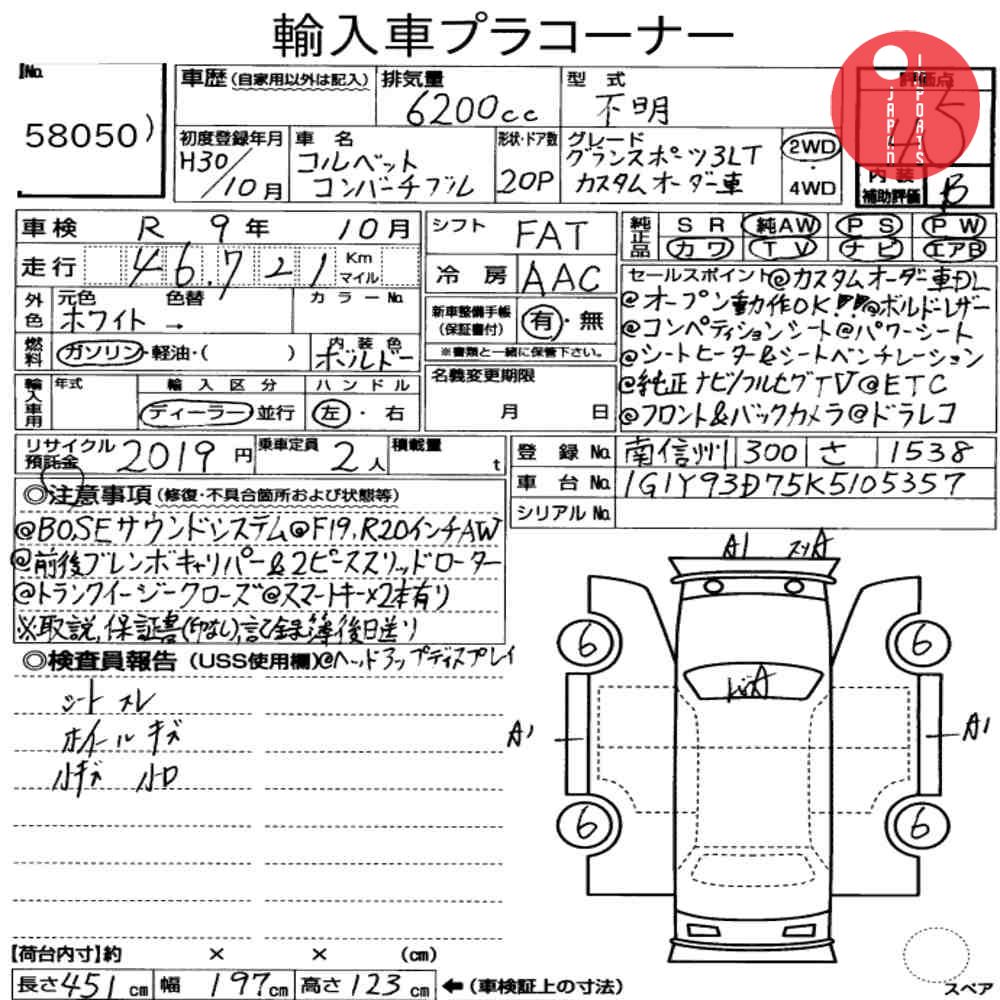 輸入車プラコーナー
No. 58050)
車歴 (自家用以外は記入) 排気量 6200cc 型式 不明 評価点 4.5
JAPAN IMPORTS
初度登録年月 H30/10月 車名 コルベット コンバーチブル 形状・ドア数 20P グレード グランスポーツ3LT カスタムオーダー車 2WD・4WD
内装補助評価 B
車検 R 9年 10月 シフト FAT 純正品 SR 純AW PS PW
カワ TV ナビ エアB
走行 46,721 Km マイル 冷房 AAC
外色 元色 ホワイト 色替 → カラーNo.
新車整備手帳 (保証書付) 有・無
※書類と一緒に保管下さい。
燃料 ガソリン・軽油・( ) 内装色 ボルドー
輸入車用 年式 輸入区分 ディーラー 並行 ハンドル 左・右
名義変更期限 月 日
セールスポイント @カスタムオーダー車DL
@オープン動作OK!! @ボルドーレザー
@コンペティションシート@パワーシート
@シートヒーター&シートベンチレーション
@純正ナビ/フルセグTV@ETC
@フロント&バックカメラ@ドラレコ
リサイクル預託金 2019円 乗車定員 2人 積載量 t
登録No. 南信州 300 さ 1538
車台No. 1G1Y93D75K5105357
シリアルNo.
◎注意事項 (修復・不具合箇所および状態等)
@BOSEサウンドシステム@F19,R20インチAW
@前後ブレンボキャリパー&2ピーススリッドローター
@トランクイージークローズ@スマートキー×2本有り
※取説,保証書(印なし),記録簿後日送り
◎検査員報告 (USS使用欄) @ヘッドアップディスプレイ
シート スレ
ホイール キズ
小キズ 小ロ
A1 スリA
6 6
A1 A1
6 6
スペア
【荷台内寸】約 × × (cm)
長さ 451 cm 幅 197 cm 高さ 123 cm ←(車検証上の寸法)